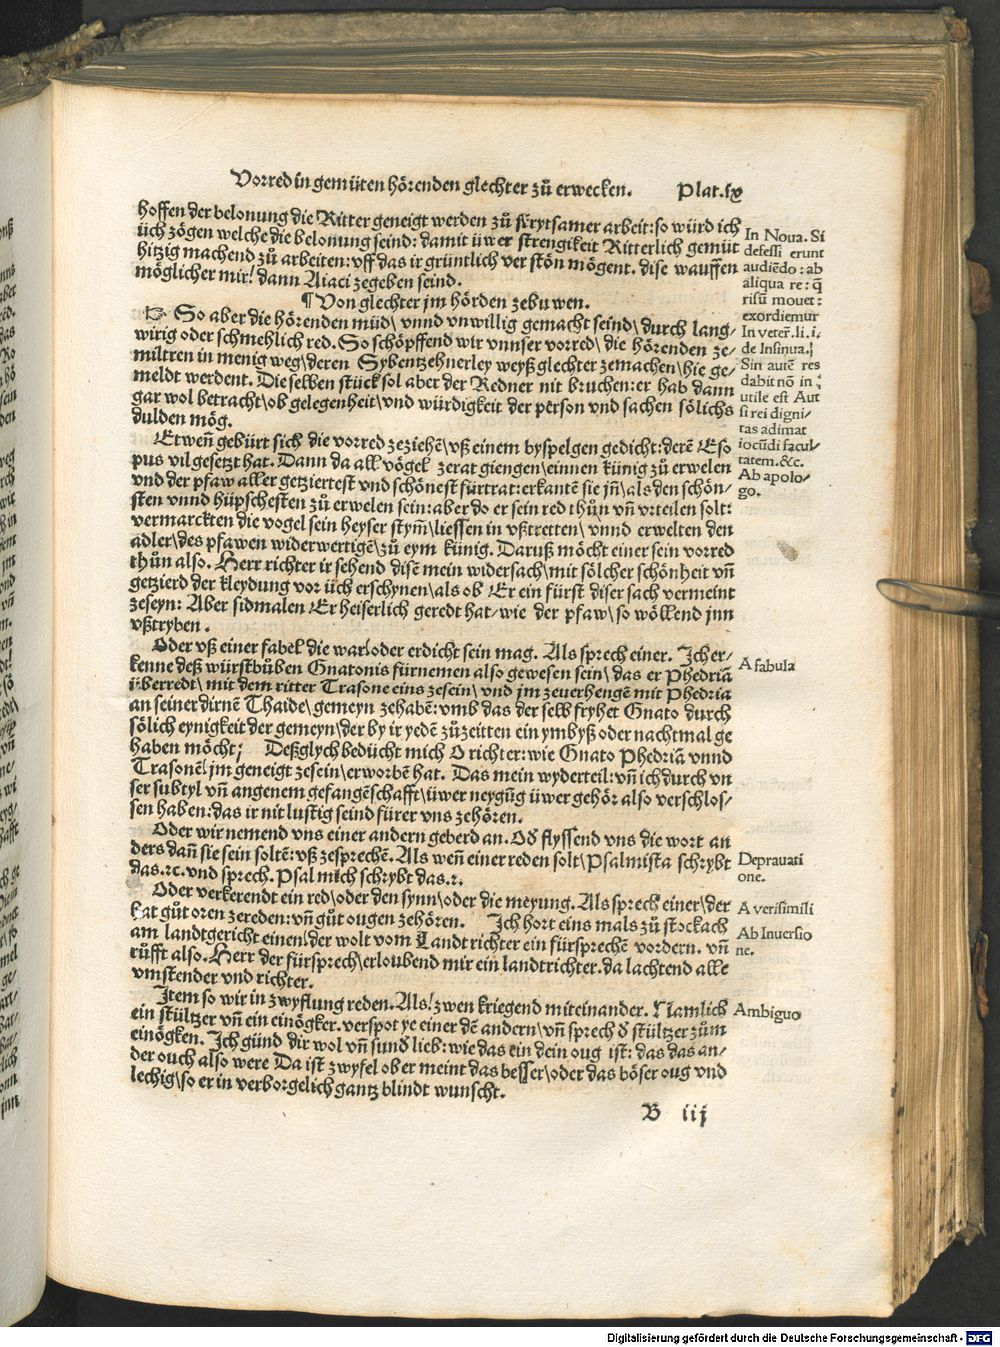 Vorred in gemüten hörenden glechter zů erwecken. Plat.ix
hoffen der belonung die Ritter geneigt werden zů strytsamer arbeit: so würd ich
üch zögen welche die belonung seind: damit üwer strengikeit Ritterlich gemüt
hitzig machend zů arbeiten: vff das ir grüntlich verstön mögent. dise wauffen
möglicher mir/ dann Aiaci zegeben seind.
¶ Von glechter jm hörden zebuwen.
So aber die hörenden müd\ vnnd vnwillig gemacht seind\ durch lang-
wirig oder schmehlich red. So schöpffend wir vnnser vorred\ die hörenden ze-
miltren in menig weg\ deren Sybentzehnerley weyß glechter zemachen\ hie ge-
meldt werdent. Die selben stück sol aber der Redner nit bruchen: er hab dann
gar wol betracht\ ob gelegenheit\ vnd würdigkeit der person vnd sachen sölichs
dulden mög.
Etweñ gebürt sich die vorred zeziehē\ vß einem byspelgen gedicht: derē Eso
pus vil gesetzt hat. Dann da all vögel zerat giengen\ einnen künig zů erwelen
vnd der pfaw aller getziertest vnd schönest fürtrat: erkantē sie jn̄\ als den schön-
sten vnnd hüpschesten zů erwelen sein: aber do er sein red thůn vn̄ vrteilen solt:
vermarckten die vogel sein heyser stym̄\ liessen in vßtretten\ vnnd erwelten den
adler\ des pfawen widerwertigē\ zů eym künig. Daruß möcht einer sein vorred
thůn also. Herr richter ir sehend disē mein widersach\ mit sölcher schönheit vn̄
getzierd der kleydung vor üch erschynen\ als ob Er ein fürst diser sach vermeint
zeseyn: Aber sidmalen Er heiserlich geredt hat/ wie der pfaw\ so wöllend jnn
vßtryben.
Oder vß einer fabel die war\ oder erdicht sein mag. Als sprech einer. Ich er-
kenne deß würstbůben Gnatonis fürnemen also gewesen sein\ das er Phedriā
überredt\ mit dem ritter Trasone eins zesein\ vnd jm zeuerhengē mit Phedria
an seiner dirnē Thaide\ gemeyn zehabē: vmb das der selb fryhet Gnato durch
sölich eynigkeit der gemeyn\ der by ir yedē zůzeitten ein ymbyß oder nachtmal ge
haben möcht; Deßglych bedücht mich O richter: wie Gnato Phedriā vnnd
Trasonē\ jm geneigt zesein\ erworbē hat. Das mein wyderteil: vn̄ ich durch vn
ser subtyl vn̄ angenem gefangēschafft\ üwer neygūg üwer gehör also verschlos-
sen haben: das ir nit lustig seind fürer vns zehören.
Oder wir nemend vns einer andern geberd an. Od̄ flyssend vns die wort an
ders dañ sie sein soltē: vß zesprechē. Als weñ einer reden solt\ Psalmista schrybt
das. ꝛc. vnd sprech. Psal mich schrybt das. ꝛ.
Oder verkerendt ein red\ oder den synn\ oder die meyung. Als sprech einer\ der
hat gůt oren zereden: vn̄ gůt ougen zehören. Ich hort eins mals zů stockach
am landtgericht einen\ der wolt vom Landtrichter ein fürsprechē vordern. vn̄
růfft also. Herr der fürsprech\ erloubend mir ein landtrichter. da lachtend alle
vmstender vnd richter.
Item so wir in zwyflung reden. Als/ zwen kriegend miteinander. Namlich
ein stültzer vn̄ ein einögker. verspot ye einer dē andern\ vn̄ sprech d̄ stültzer zům
einögken. Ich günd dir wol vn̄ sund lieb: wie das ein dein oug ist: das das an-
der ouch also were Da ist zwyfel ob er meint das besser\ oder das böser oug vnd
lechig\ so er in verborgelich gantz blindt wunscht.
B iij
In Noua. Si
defessi erunt
audiēdo: ab
aliqua re: q̄
risū mouet:
exordiemur
In veter̄. li. i.
de Insinua.
Sin autē res
dabit nō in
utile est Aut
si rei digni-
tas adimat
iocūdi facul-
tatem. &c.
Ab apolo-
go.
A fabula
Deprauati
one.
A verisimili
Ab Inuersio
ne.
Ambiguo
Digitalisierung gefördert durch die Deutsche Forschungsgemeinschaft - DFG